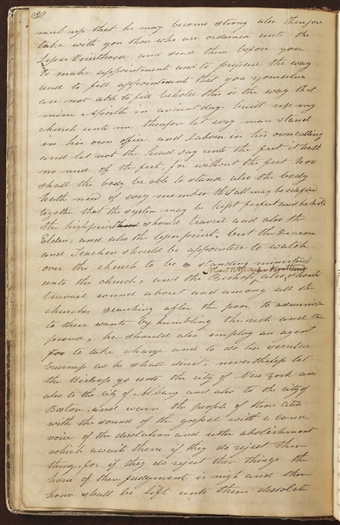 built up that he may become strong also therefore
take with you those who are ordained unto the
lesser Priesthood and send them before you
to make appointments and to prepare the way
and to fill appointments that you yourselves
are not able to fill behold this is the way that
mine Apostles in ancient days built up my
church unto me therefore let every man stand
in his own office and labour in his own calling
and let not the head say unto the feet it hath
no need of the feet, for without the feet how
shall the body be able to stand also the body
hath need of every member that all may be edified
together that the system may be kept perfect and behold
the high priests should travel and also the
Elders, and also the lesser priests, but the deacons
and Teachers should be appointed to watch
over the church to be standing ministers
unto the church, and the Bishop also should
travel round about and among all the
churches searching after the poor to administer
to there wants by humbling the rich and the
proud, he should also employ an agent
to take charge and to do his secular
business as he shall direct. nevertheless let
the Bishop go unto the city of New York and
also to the City of Albany and also to the city of
Boston, and warn the people of those cities
with the sound of the gospel with a loud
voice of the desolation and utter abolishment
which awaits them if they do reject these
things, for if they do reject these things the
hour of their judgement is nigh and their
house shall be left unto them desolate